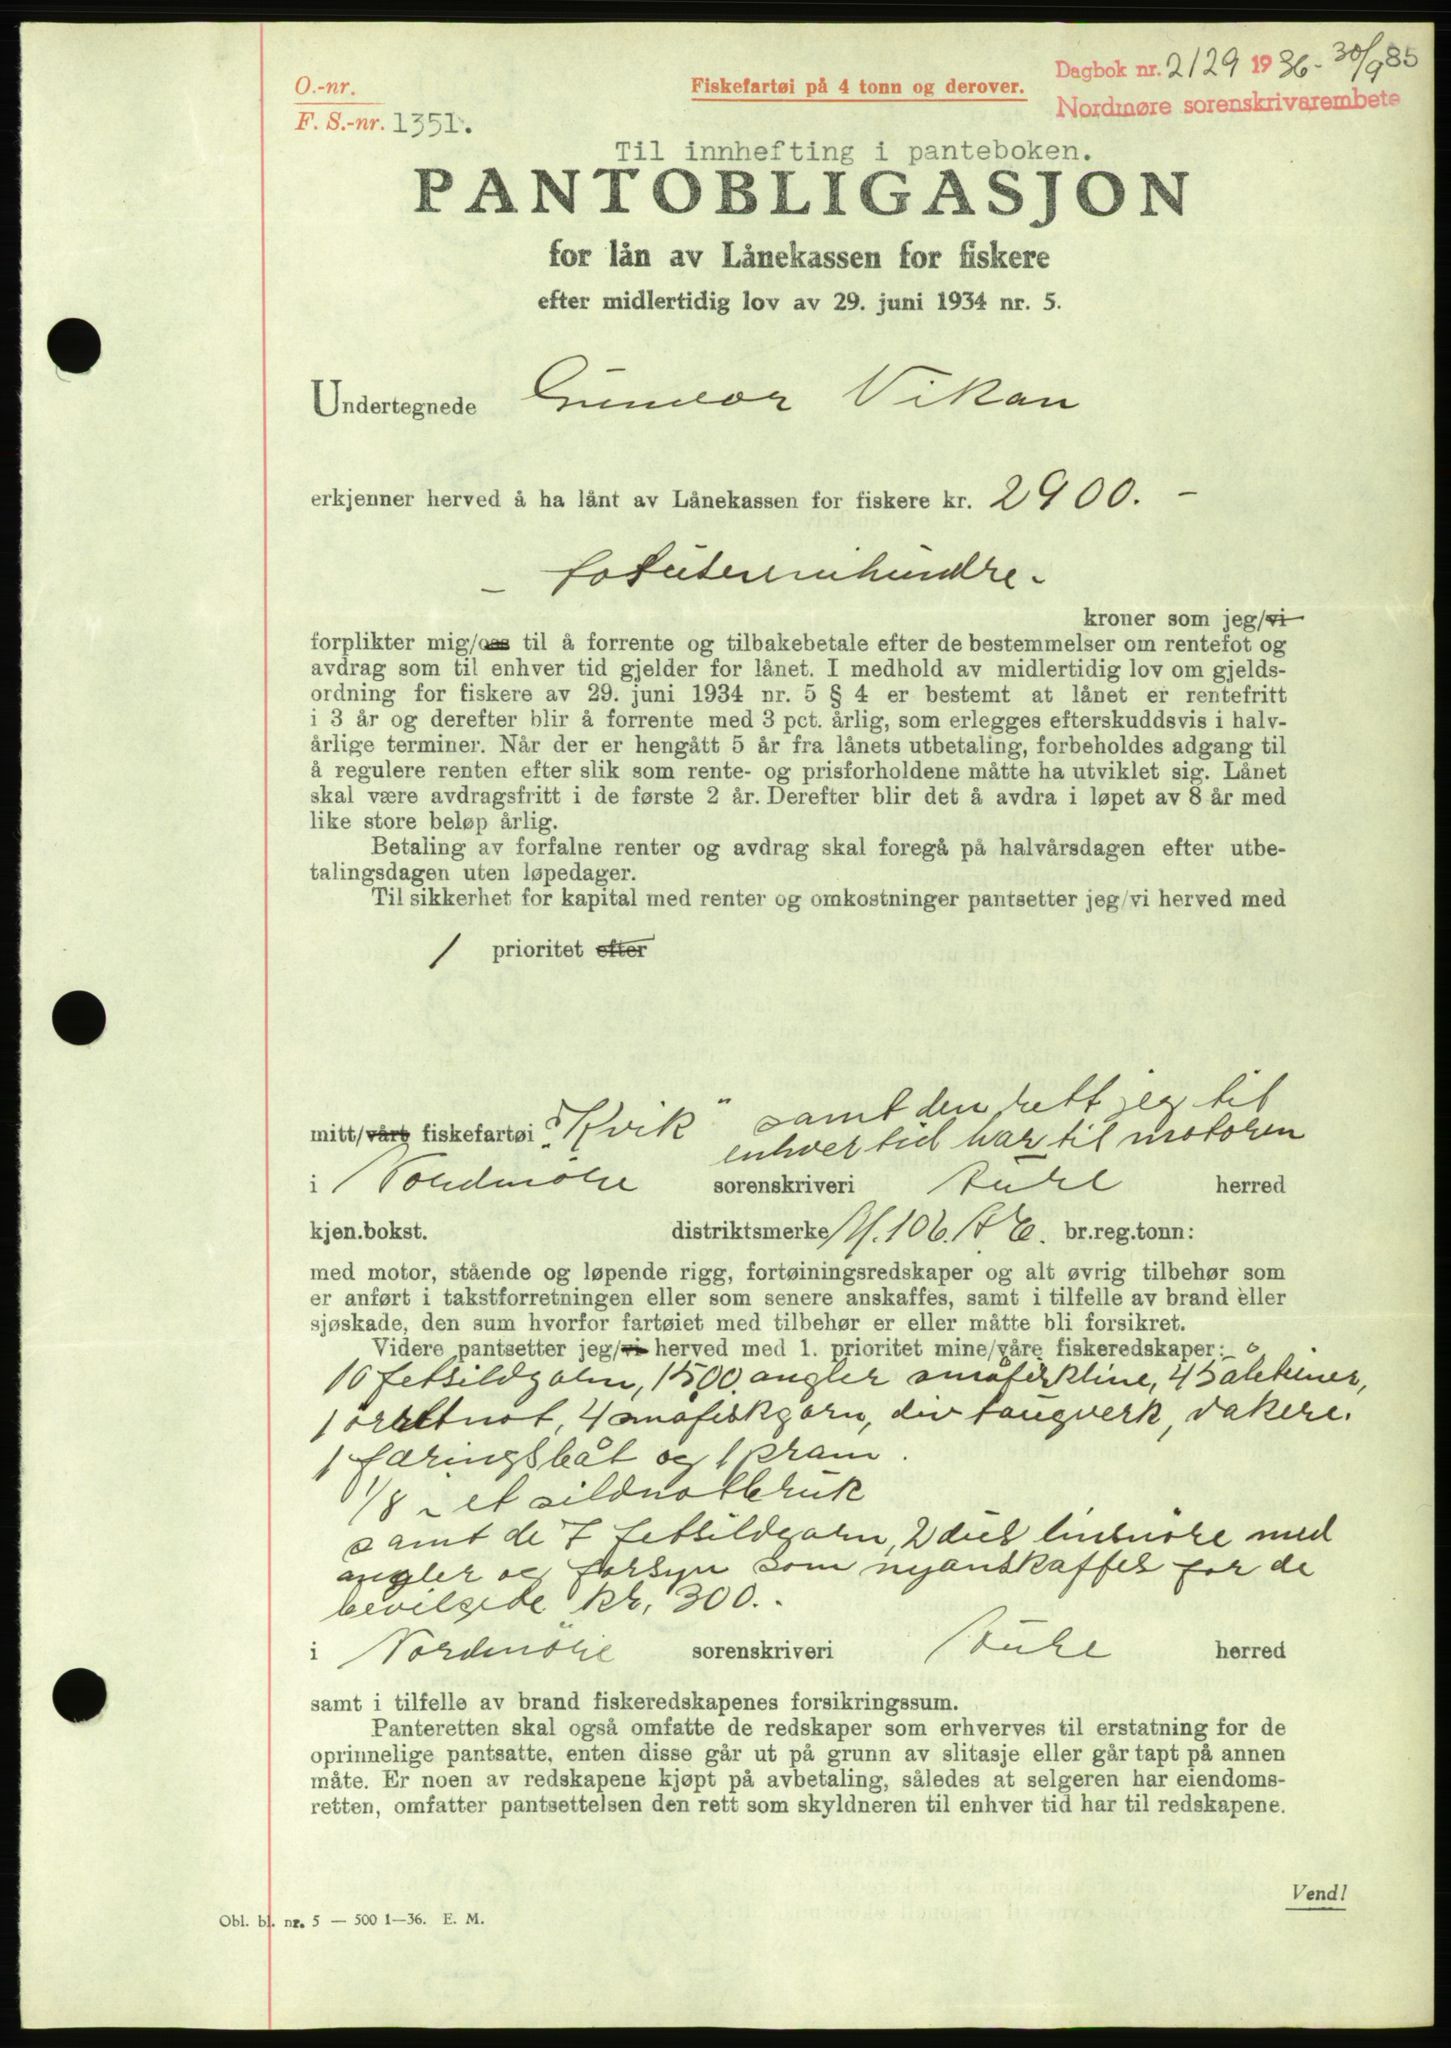 O.-nr.
F. S.-nr. 1351.
Fiskefartøi på 4 tonn og derover.
Dagbok nr. 2129 1936 - 30/9 85
Nordmøre sorenskrivarembete
Til innhefting i panteboken.
PANTOBLIGASJON
for lån av Lånekassen for fiskere
efter midlertidig lov av 29. juni 1934 nr. 5.
Undertegnede Vikan
erkjenner herved å ha lånt av Lånekassen for fiskere kr. 2900. -
kroner som jeg/vi
forplikter mig/oss til å forrente og tilbakebetale efter de bestemmelser om rentefot og
avdrag som til enhver tid gjelder for lånet. I medhold av midlertidig lov om gjelds-
ordning for fiskere av 29. juni 1934 nr. 5 § 4 er bestemt at lånet er rentefritt
i 3 år og derefter blir å forrente med 3 pct. årlig, som erlegges efterskuddsvis i halv-
årlige terminer. Når der er hengått 5 år fra lånets utbetaling, forbeholdes adgang til
å regulere renten efter slik som rente- og prisforholdene måtte ha utviklet sig. Lånet
skal være avdragsfritt i de første 2 år. Derefter blir det å avdra i løpet av 8 år med
like store beløp årlig.
Betaling av forfalne renter og avdrag skal foregå på halvårsdagen efter utbe-
talingsdagen uten løpedager.
Til sikkerhet for kapital med renter og omkostninger pantsetter jeg/vi herved med
1 prioritet efter
samt den rett jeg til
mitt/vårt fiskefartøi "Kvik" enhver tid har til motoren
i Nordmøre sorenskriveri Aure herred
kjen.bokst. distriktsmerke M. 106. A E. br.reg.tonn:
med motor, stående og løpende rigg, fortøiningsredskaper og alt øvrig tilbehør som
er anført i takstforretningen eller som senere anskaffes, samt i tilfelle av brand eller
sjøskade, den sum hvorfor fartøiet med tilbehør er eller måtte bli forsikret.
Videre pantsetter jeg/vi herved med 1. prioritet mine/våre fiskeredskaper:
10 fetsildgarn, 1500 angler småfiskline, 45 åleteiner,
1 ørretnot, 4 småfiskgarn, div taugverk, vakere.
1 færingsbåt og 1 pram.
1/8 - et sildnotbruk
samt de 7 fetsildgarn, 2 dus linsnøre med
angler og forsyn som nyanskaffes for de
bevilgede kr. 300.-
i Nordmøre sorenskriveri Aure herred
samt i tilfelle av brand fiskeredskapenes forsikringssum.
Panteretten skal også omfatte de redskaper som erhverves til erstatning for de
oprinnelige pantsatte, enten disse går ut på grunn av slitasje eller går tapt på annen
måte. Er noen av redskapene kjøpt på avbetaling, således at selgeren har eiendoms-
retten, omfatter pantsettelsen den rett som skyldneren til enhver tid har til redskapene.
Vend!
Obl. bl. nr. 5 — 500 1—36. E. M.